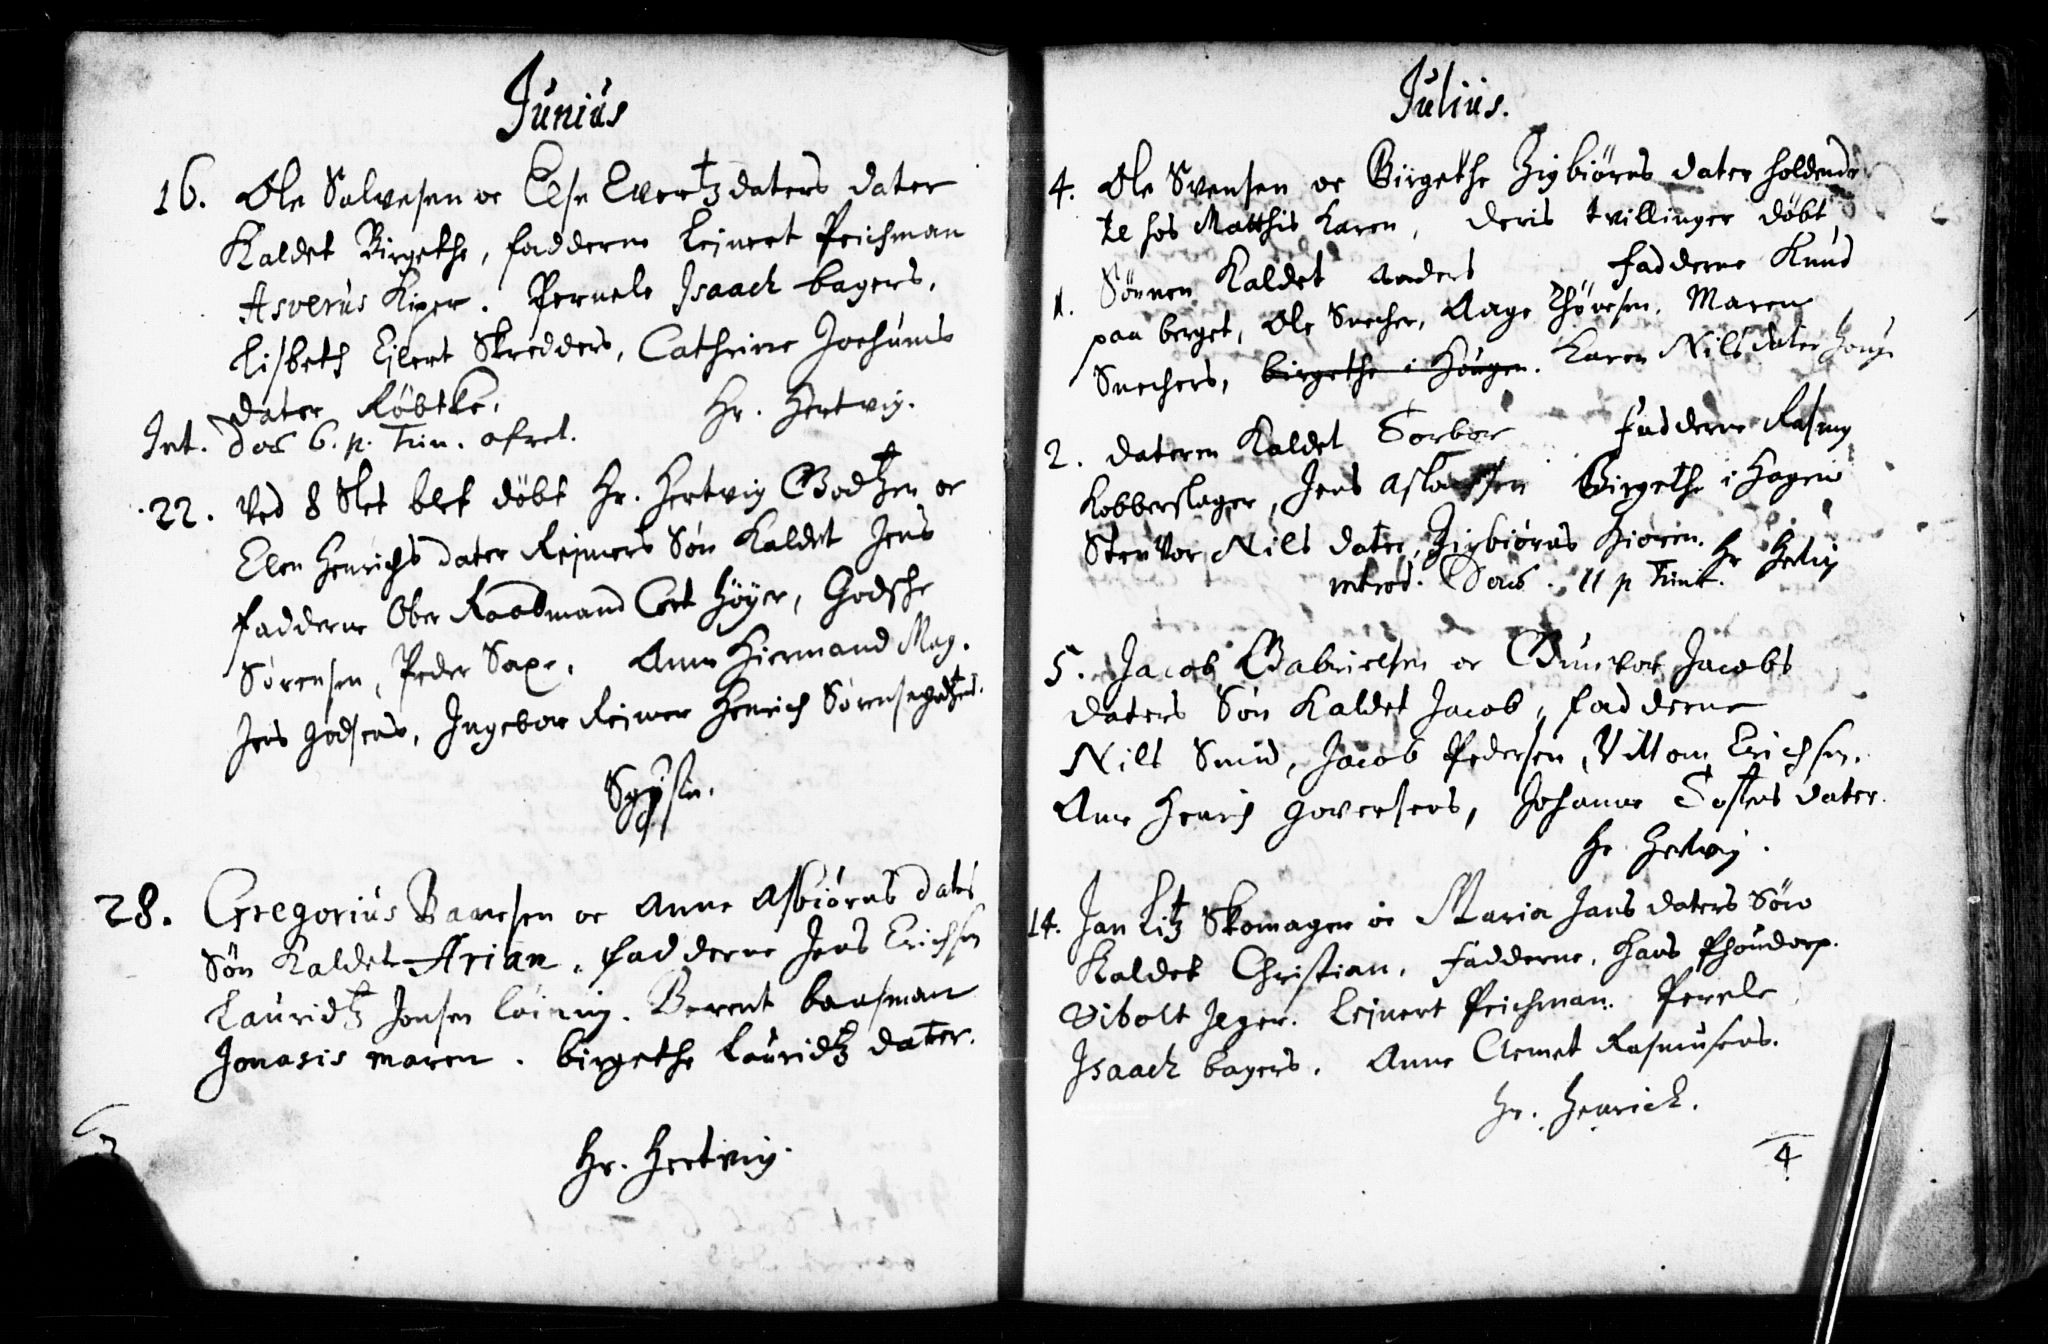 Junius
16. Ole Salvesen oc Else Evertz daters dater
Kaldet Birgethe, fadderne Lejnert Peichman
Asverus Kiper. Pernele Isaach bagers.
Lisbeth Ejlert Skredders, Cathrine Jochums
dater Røbtke. Hr. Hertvig.
Int. Dos 6. p. Trin. ofret.
22. Ved 8 Slet blef døbt Hr. Hertvig Godtzen oc
Elen Henrichs dater Rejmers Søn Kaldet Jens
fadderne Ober Raadmand Cort Høyer, Godsche
Sørensen, Peder Saxe. Anne Hiermand Mag.
Jens Godsens, Ingebor Rejmer Henrich Sørensen
28. Gregorius Baarsen oc Anne Asbiørns dats
Søn Kaldet Arian. fadderne Jens Erichsen
Lauridtz Jonsen. Berent baasman
Jonasis maren. birgethe Lauridtz dater.
Hr. Hertvig.
Julius.
4. Ole Svensen oc Birgethe Zigbiørns dater holdende
te hos Matthis Karen, deris tvillinger døbt
1. Sønnen Kaldet Anders fadderne Knud
paa berget, Ole Snecher, Aage Thøresen. Maren
Snechers, birgethe i Hougen. Karen Nilsdater
2. dateren Kaldet Torbor fadderne Rasmus
Kobberslager, Jens Aslacksen Birgethe i Hagen
Stenvor Nils dater, Zigbiørns Hr Hertvig
introd. Dom. 11 p Trinit.
5. Jacob Gabrielsen oc Gunvor Jacobs
daters Søn Kaldet Jacob, fadderne
Nils Smid, Jacob Pedersen, Villom Erichsen.
Anne Henrich Goversens, Johanne Tostens dater.
Hr Hertvig.
14. Jan Litz Skomager oc Maria Jans daters Søn
Kaldet Christian. fadderne. Hans
Vibolt Jeger. Lejnert Peichman. Pernele
Isaach bagers. Anne Clemet Rasmusens.
Hr. Henrick.
4